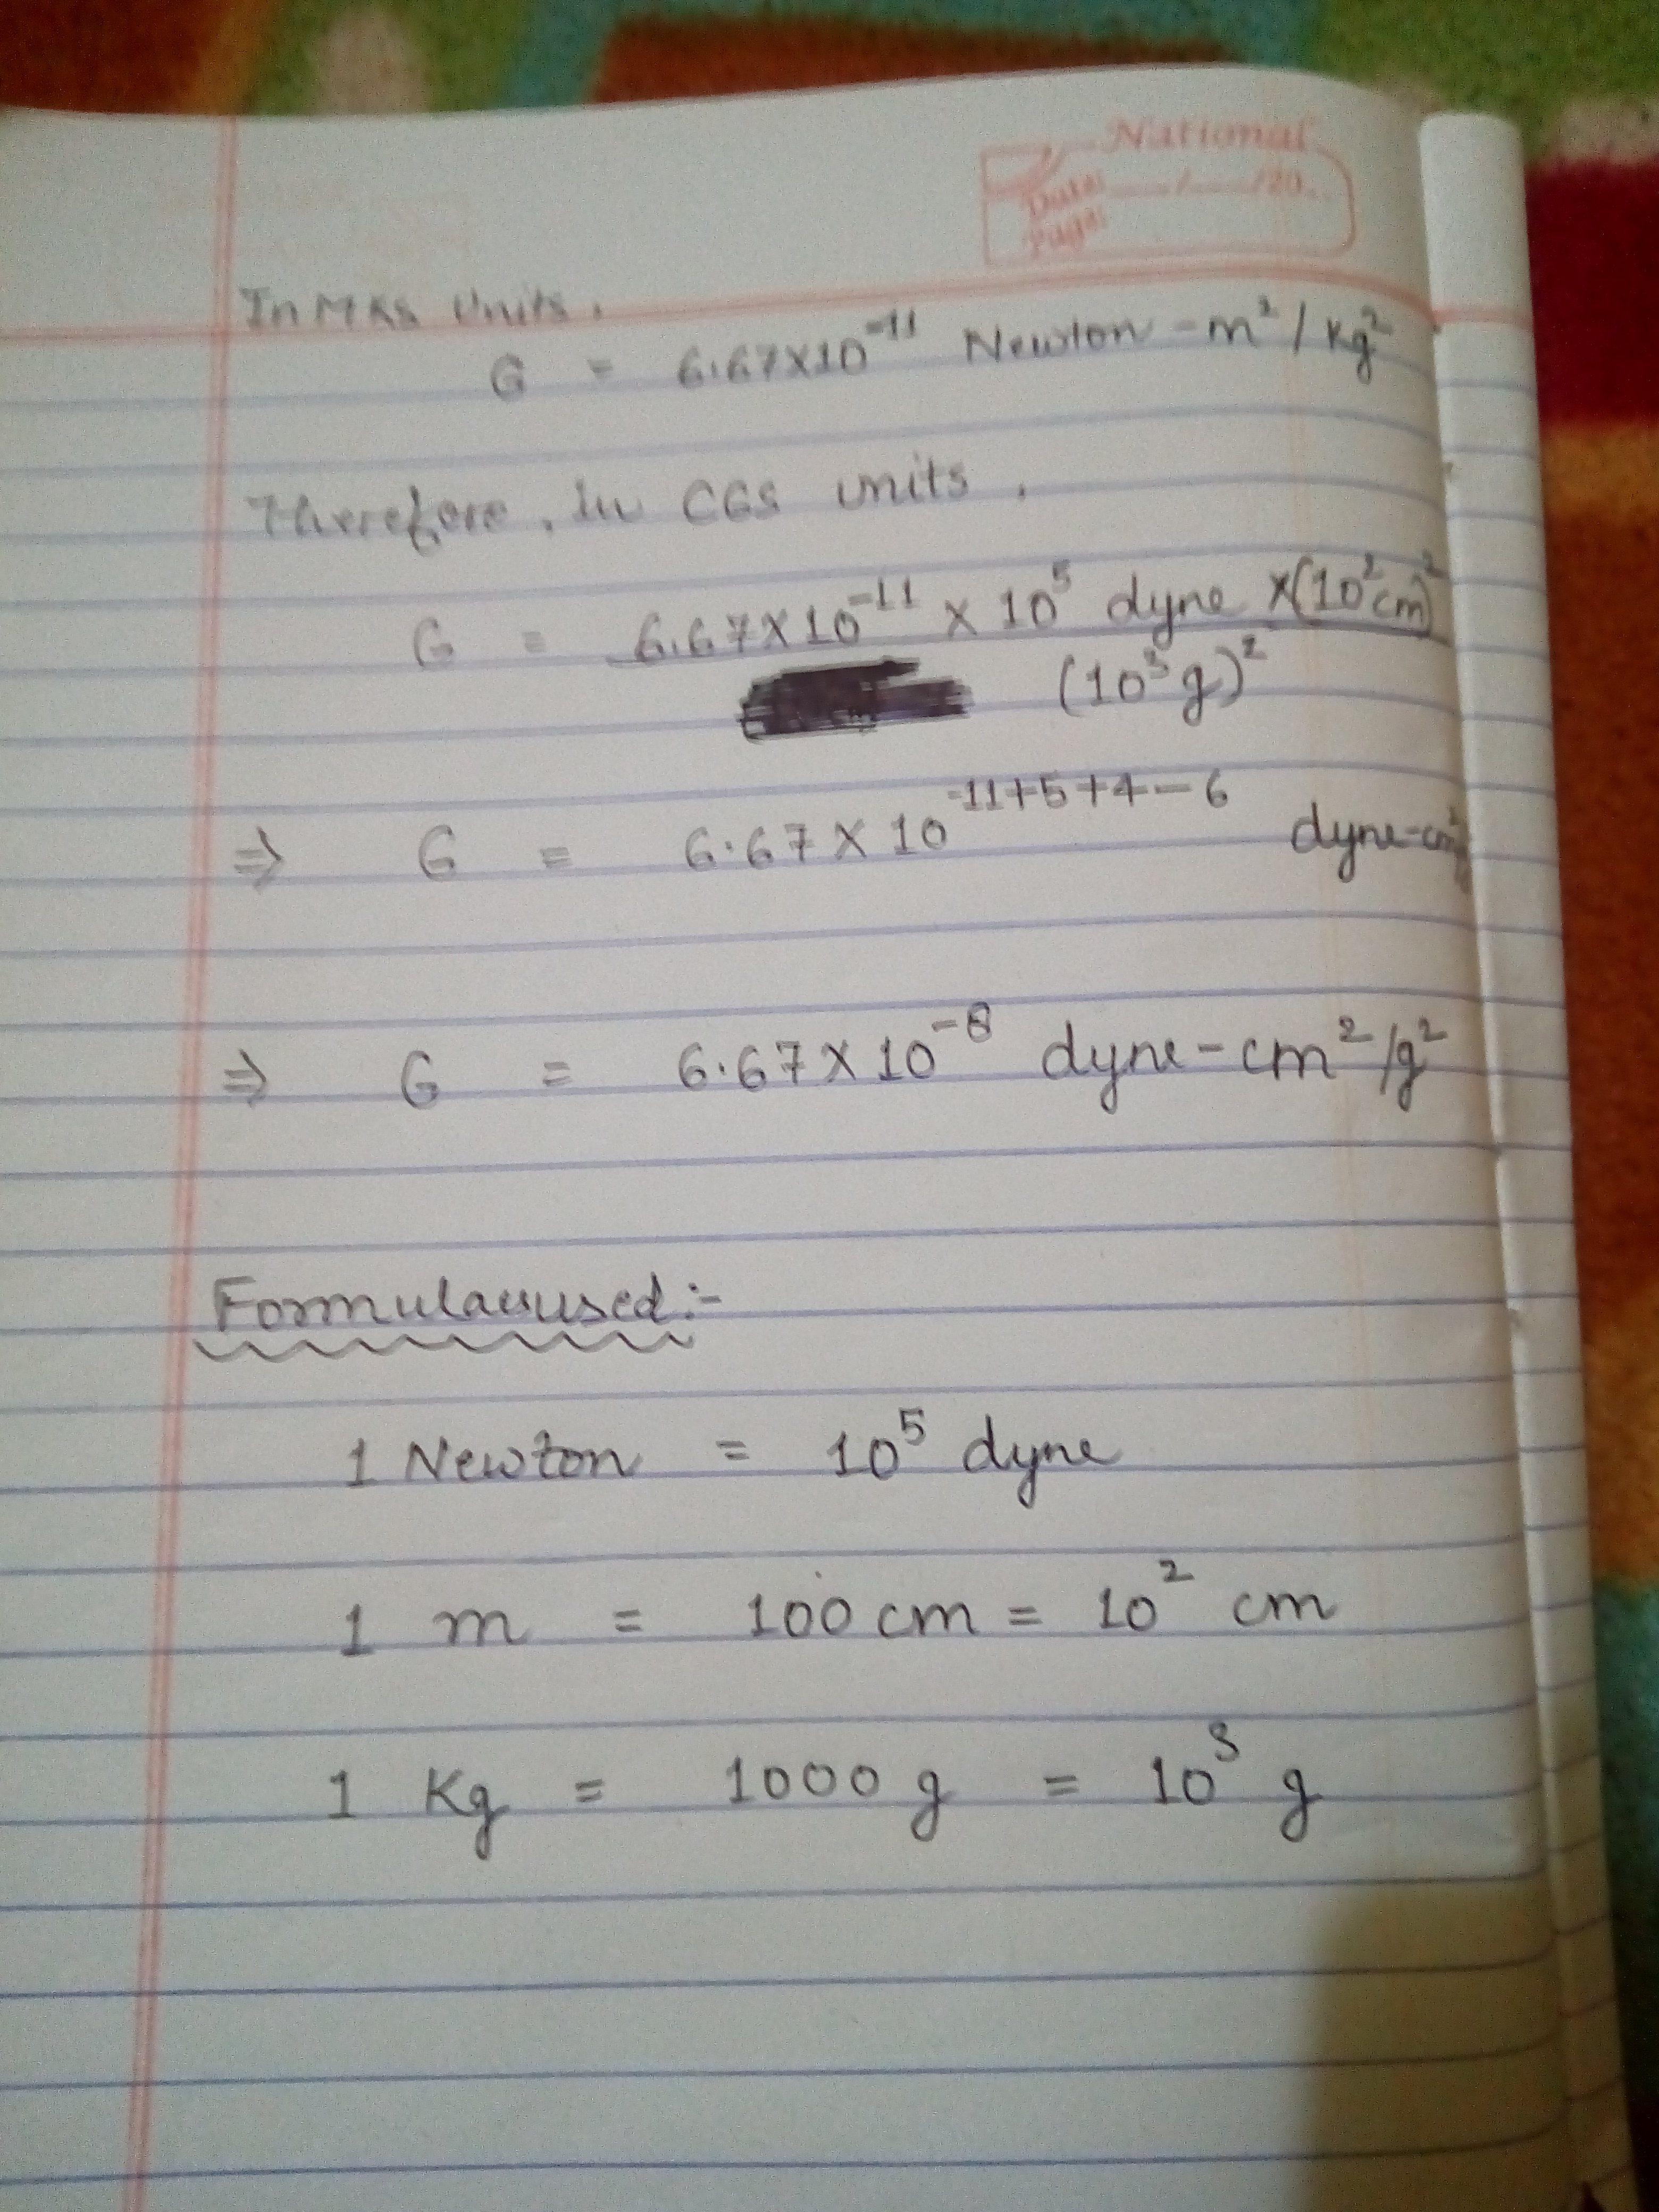 National
Date: ___/___/20
Page:
In MKS Units,
G = 6.67×10⁻¹¹ Newton-m²/Kg²
Therefore, In CGS units,
G = 6.67×10⁻¹¹ × 10⁵ dyne ×(10²cm)²
(10³g)²
⇒ G = 6.67×10⁻¹¹⁺⁵⁺⁴⁻⁶ dyne-cm²
⇒ G = 6.67×10⁻⁸ dyne-cm²/g²
Formulaeused:-
1 Newton = 10⁵ dyne
1 m = 100 cm = 10² cm
1 Kg = 1000 g = 10³ g